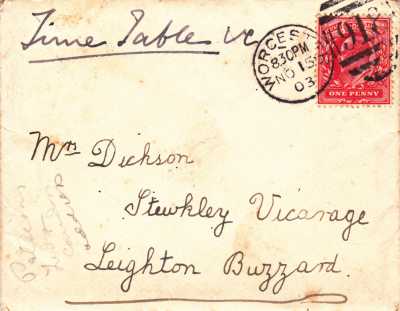 Time Table
WORCESTER
830PM
NO 15
03
ONE PENNY
Mrs Dickson
Stewkley Vicarage
Leighton Buzzard.